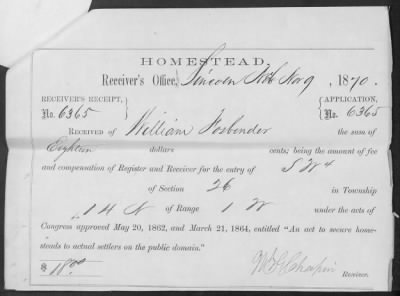 HOMESTEAD.
Receiver's Office, Lincoln Neb Nov 9, 1870.
RECEIVER'S RECEIPT, No. 6365
APPLICATION, No. 6365
RECEIVED of William Fosbender the sum of
Eighteen dollars cents; being the amount of fee
and compensation of Register and Receiver for the entry of S W 4
of Section 26 in Township
14 N of Range 1 W under the acts of
Congress approved May 20, 1862, and March 21, 1864, entitled “An act to secure home-
steads to actual settlers on the public domain.”
$ 18.00
Chapin
Receiver.